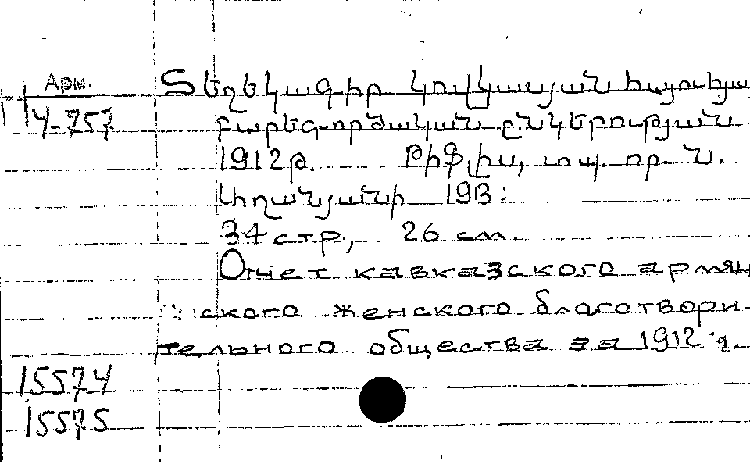 Арм.
Տեղեկագիր կովկասյան հայուհյա
У-757
բարեգործական ընկերության
1912թ. Թիֆլիս, տպ. օր. Ն.
Աղանյանի 1913:
34 стр., 26 см.
Отчет кавказского армян
ского женского благотвори-
тельного общества за 1912 г.
15574
15575